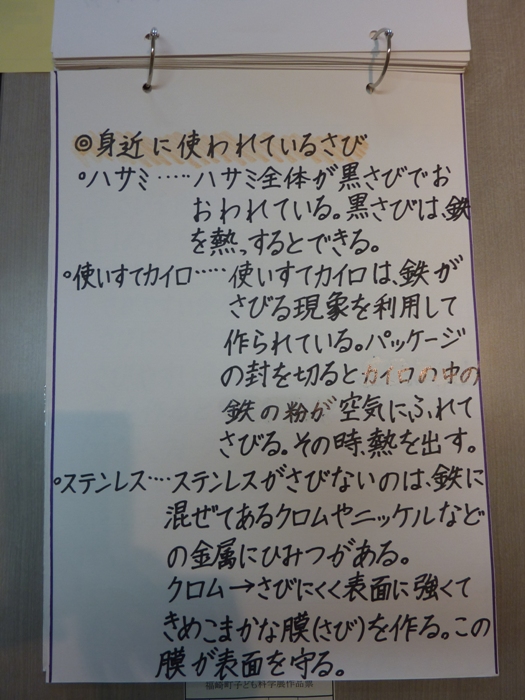 ◎身近に使われているさび
°ハサミ‥‥‥ハサミ全体が黒さびでお
おわれている。黒さびは、鉄
を熱っするとできる。
°使いすてカイロ‥‥‥使いすてカイロは、鉄が
さびる現象を利用して
作られている。パッケージ
の封を切るとカイロの中の
鉄の粉が空気にふれて
さびる。その時、熱を出す。
°ステンレス‥‥ステンレスがさびないのは、鉄に
混ぜてあるクロムやニッケルなど
の金属にひみつがある。
クロム→さびにくく表面に強くて
きめこまかな膜(さび)を作る。この
膜が表面を守る。
福崎町子ども科学展作品票